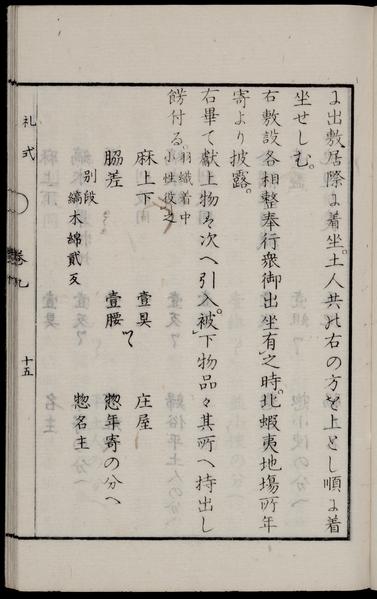 に出敷居際に着坐。土人共ハ右の方を上とし順に着
坐せしむ。
右敷設各相整奉行衆御出坐有之時。北蝦夷地場所年
寄より披露。
右畢て献上物を次へ引入。被下物品々其所へ持出し
餝付る。羽織着中
小性役之
麻上下 壹具 庄屋
脇差 壹腰ツヽ 惣年寄の分へ
別段
縞木綿貳反 惣名主
礼式 巻九 十五